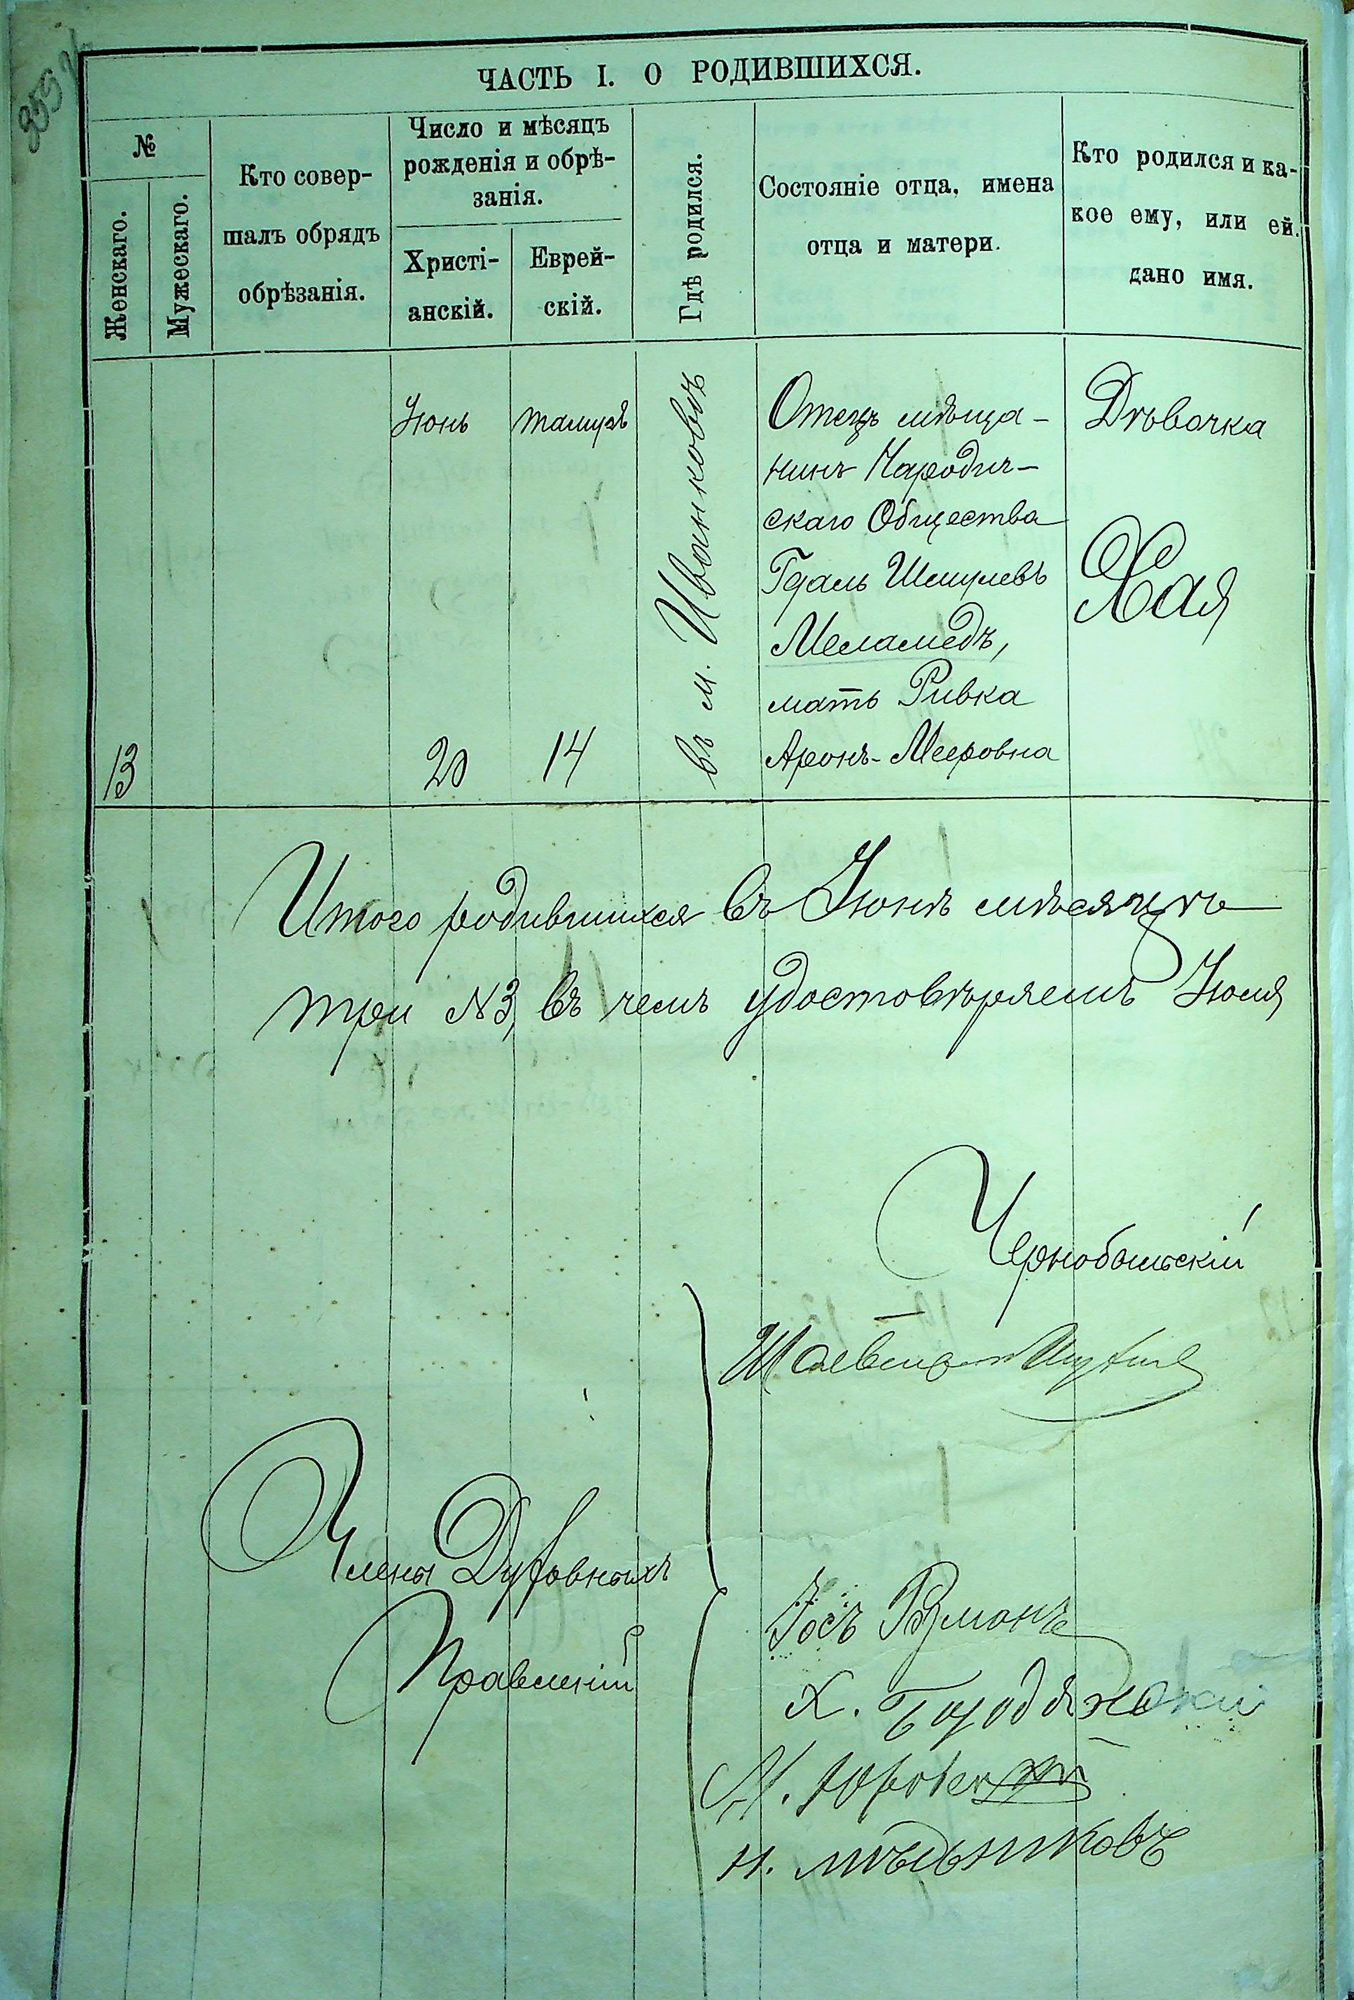 ЧАСТЬ I. О РОДИВШИХСЯ.
№
Женскаго.
Мужескаго.
Кто совер-
шалъ обрядъ
обрѣзанія.
Число и мѣсяцъ
рожденія и обрѣ-
занія.
Христі-
анскій.
Еврей-
скій.
Гдѣ родился.
Состояніе отца, имена
отца и матери.
Кто родился и ка-
кое ему, или ей
дано имя.
13
Іюнь
20
тамуза
14
въ м. Иванковѣ
Отецъ мѣща-
нинъ Народич-
скаго Общества
Гдаль Шмулевъ
Меламедъ,
мать Ривка
Аронъ-Мееровна
Дѣвочка
Хая
Итого родившихся въ Іюнѣ мѣсяцѣ
три №3, въ чемъ удостовѣряемъ Іюля
Чернобыльскій
Члены Духовныхъ
Правленій
Іосъ
Х. Бородянскій
М.
Н. Мѣдниковъ